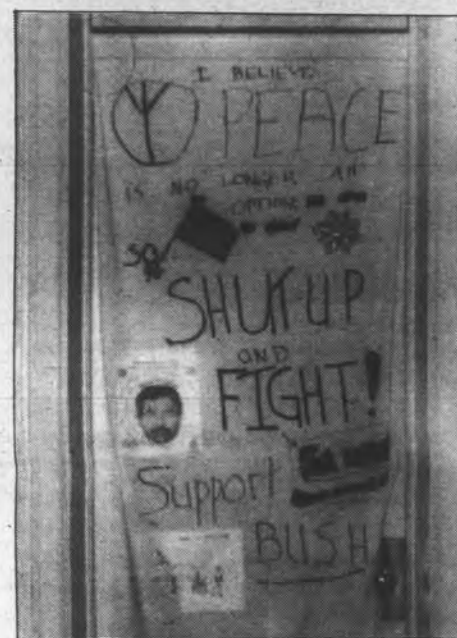 I BELIEVE
PEACE
IS NO LONGER AN
OPTION
SO
SHUT UP
AND
FIGHT!
Support
BUSH